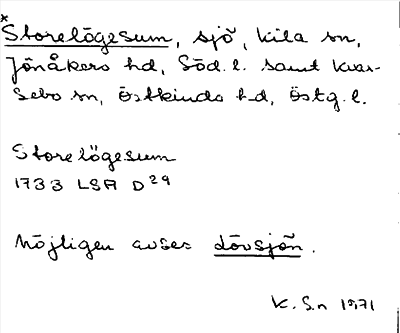 *Storelögesum, sjö, Kila sn,
Jönåkers hd, Söd. l. samt Kvar-
sebo sn, Östkinds hd, Östg. l.
Storelögesum
1733 LSA D29
Möjligen avses dövsjön.
K. S.n 1971